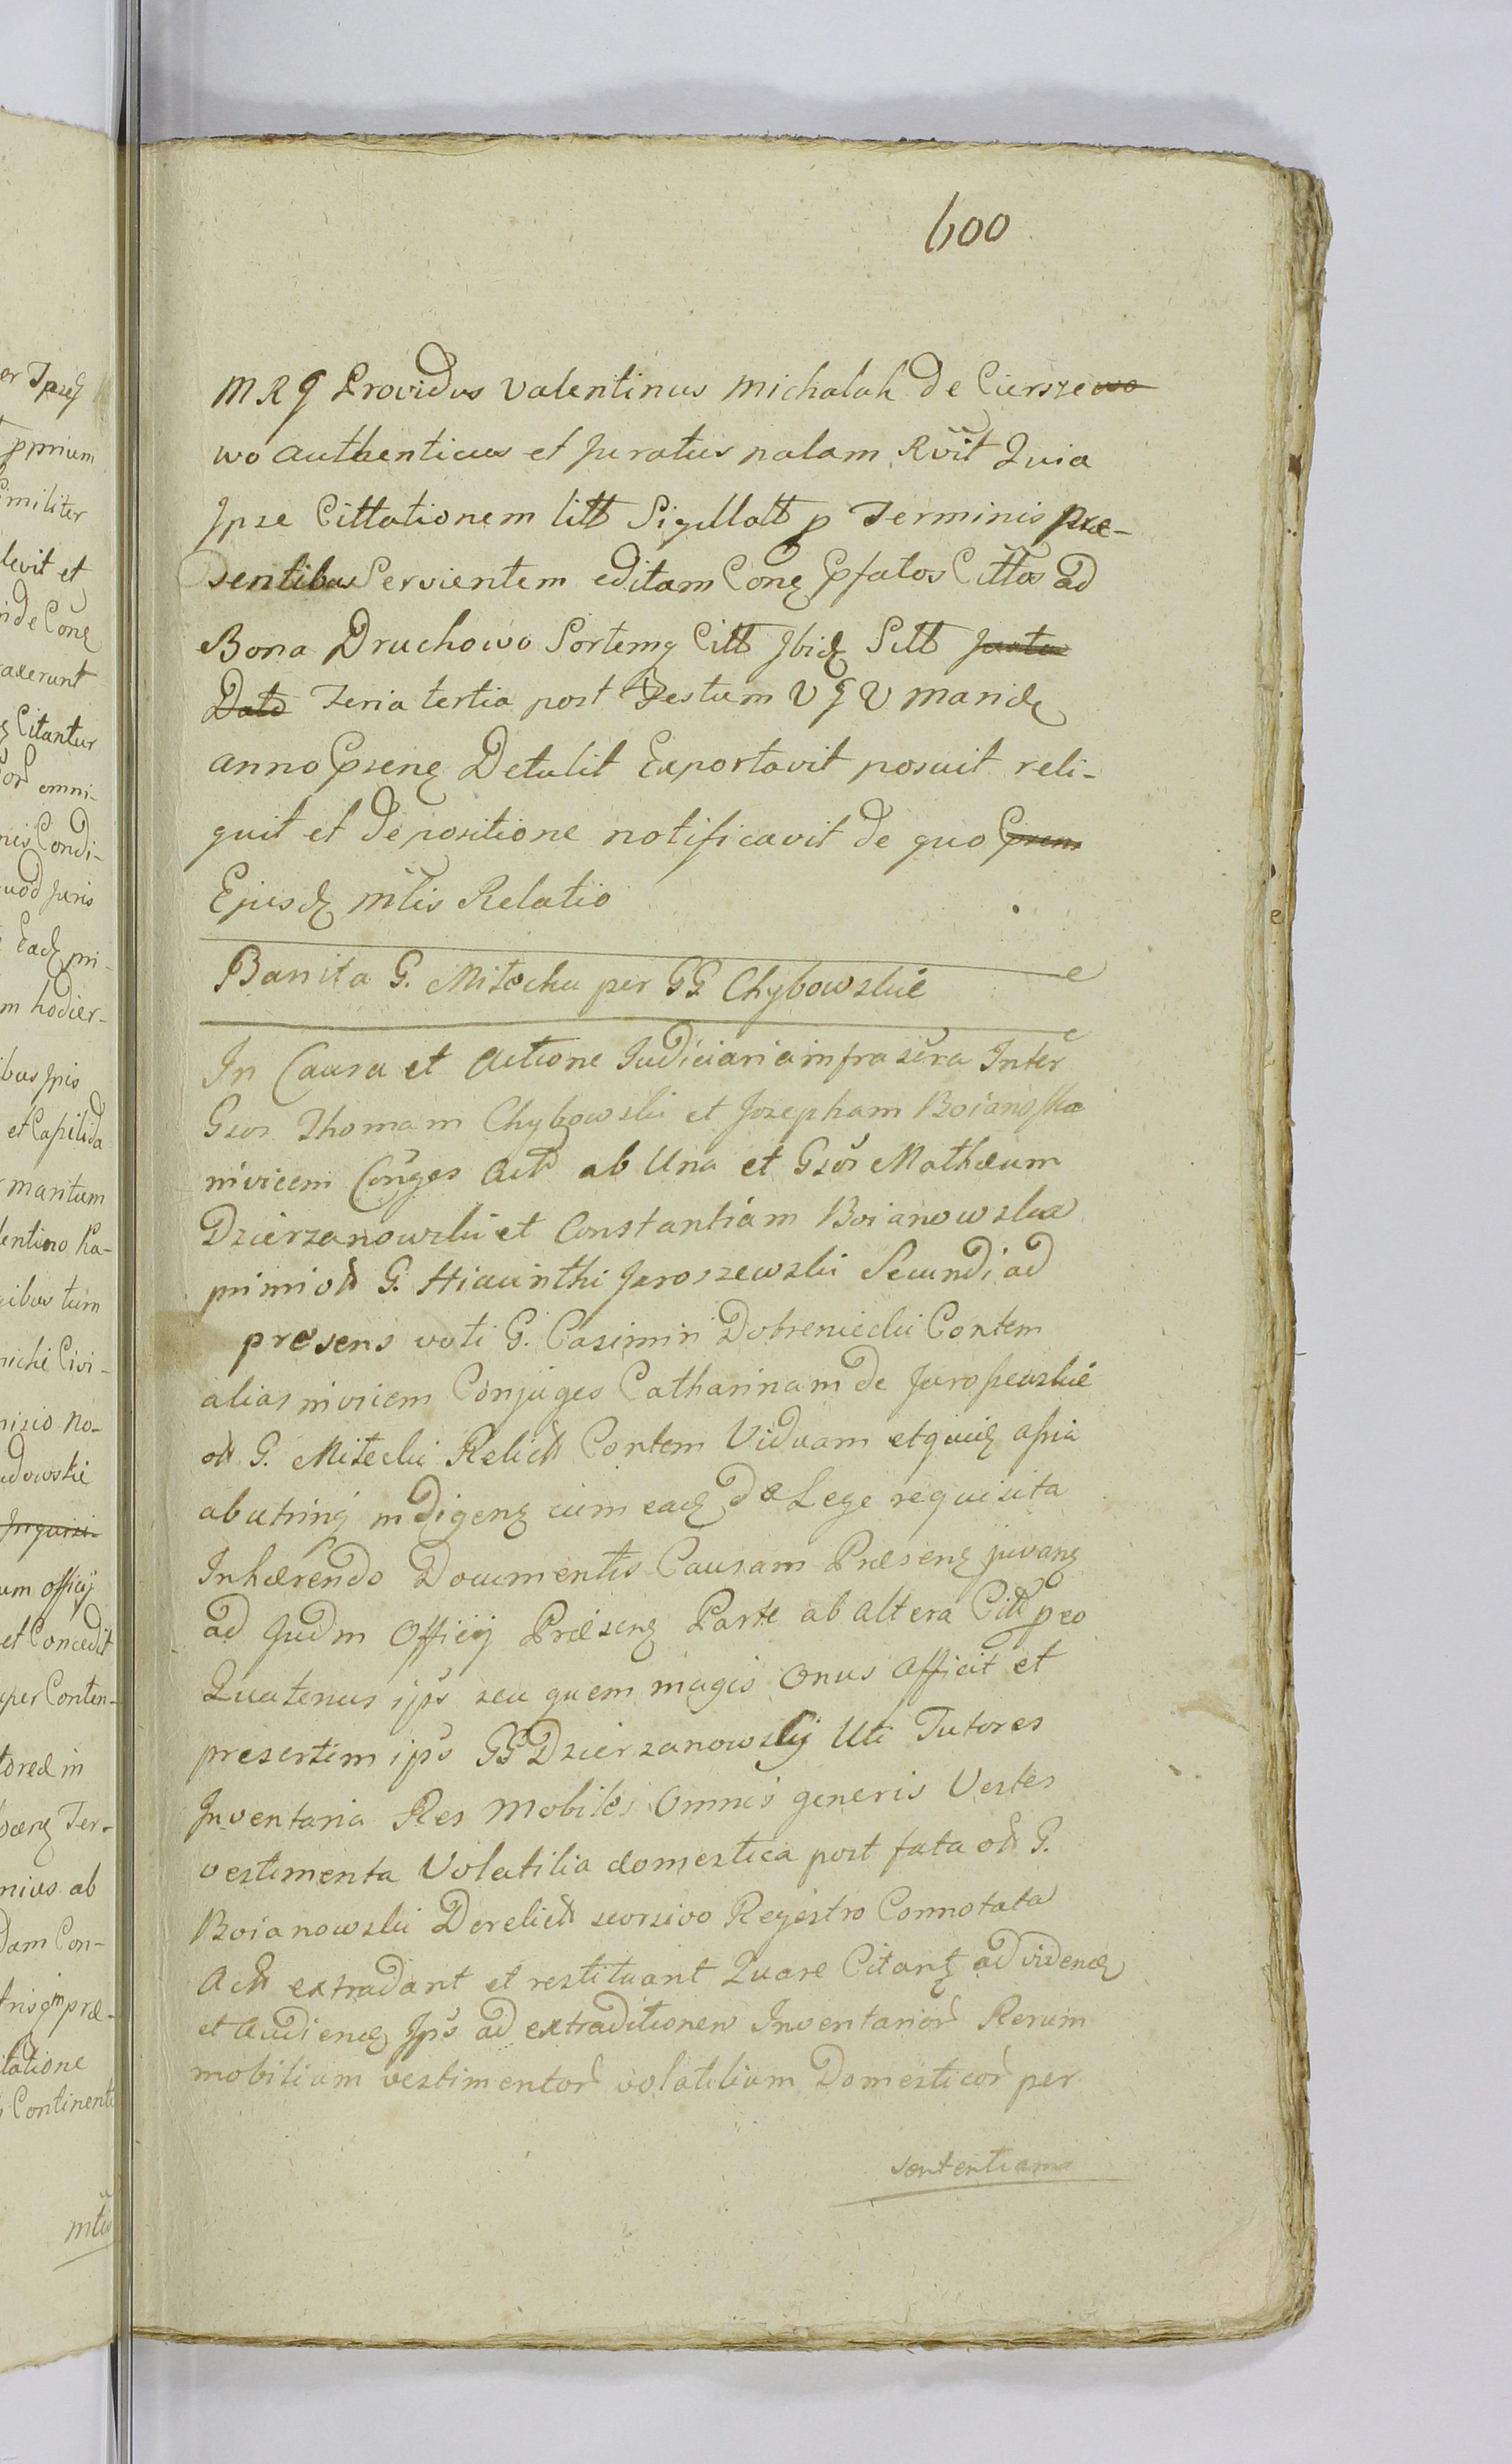 600
M R G Providus Valentinus Michalak de Cierszewo
wo authenticus et Juratus palam Rvit Quia
Ipse Cittationem litt Sigillatt p Terminis præ-
sentibus Servientem editam Conq Pfatos Cittos ad
Bona Druchowo Sortemq Citt Ibidq Sitt Juxta
Dato Feria tertia post Festum V G V Maria
anno Psenq Detulit Exportavit posuit reli-
quit et de positione notificavit de quo Prem
Ejusdq mtis Relatio
Banita G. Mitecka per GG Chybowskie
In Causa et Actione Judiciaria infra scra Inter
Gsos Thomam Chybowski et Josepham Boianoska
invicem Conges Act ab Una et Gsos Mathæum
Dzierzanowski et Constantiam Boianowska
primi ol G. Hiacinthi Jaroszewski Secundi ad
presens voti G. Casimiri Dobreniecki Contem
alias invicem Conjuges Catharinam de Jaroszewskie
ol G. Mitecki Relict Contem Viduam etquiq asia
ab utrinq indigenq cum eadq de Lege requisita
Inhærendo Documentis Causam Præsenq juvanq
ad Judm Officij Præsenq Parte ab altera Citt peo
Quatenus ips seu quem magis Onus Afficit et
presertim ips GG Dzierzanowscy Uti Tutores
Inventaria Res Mobiles Omnis generis Vestes
vestimenta Volatilia domestica post fata ol G.
Boianowski Derelict seorsivo Regestro Connotata
Act extradant et restituant Quare Citantq ad videnq
et Audiendq Ips ad extraditionem Inventarior Rerum
mobilium vestimentor volatilium Domesticor per
sententiam
er Ipsq
pprium
Similiter
levit et
inde Conq
axerunt
q Citantur
or omni-
nis Condi-
uod juris
Eadq pri-
m hodier-
ibus ipis
et Capitida
maritum
lentino Ka-
ibus tum
nicki Civi-
nisio No-
dowskie
Inquisi-
um officij
et Concedit
per Conten-
toreæ in
Ter-
nius ab
dam Con-
præ-
itatione
Continenti
mtis